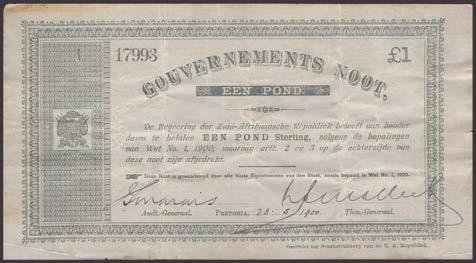 17993
£1
GOUVERNEMENTS NOOT,
EEN POND.
De Regeering der Zuid-Afrikaansche Republiek belooft aan houder
dezes te betalen EEN POND Sterling, volgens de bepalingen
van Wet No. 1, 1900, waarvan artt. 2 en 3 op de achterzijde van
deze noot zijn afgedrukt.
Deze Noot is gewaarborgd door alle Vaste Eigendommen van den Staat, zooals bepaald in Wet No. 1, 1900.
Audt.-Generaal. PRETORIA, 28 - 5 / 1900. Thes.-Generaal.
Gedrukt ter Staatsdrukkerij van de Z. A. Republiek.